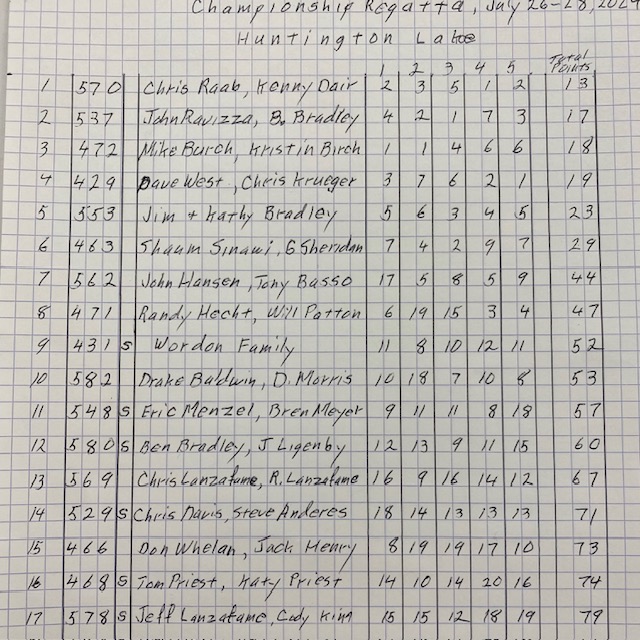 Championship Regatta, July 26-28, 2024
Huntington Lake
1 2 3 4 5 Total Points
1 570 Chris Raab, Kenny Dair 2 3 5 1 2 13
2 537 John Ravizza, B. Bradley 4 2 1 7 3 17
3 472 Mike Burch, Kristin Birch 1 1 4 6 6 18
4 429 Dave West, Chris Krueger 3 7 6 2 1 19
5 553 Jim + Kathy Bradley 5 6 3 4 5 23
6 463 Shaum Sinawi, G Sheridan 7 4 2 9 7 29
7 562 John Hansen, Tony Basso 17 5 8 5 9 44
8 471 Randy Hecht, Will Patton 6 19 15 3 4 47
9 431 S Wordon Family 11 8 10 12 11 52
10 582 Drake Baldwin, D. Morris 10 18 7 10 8 53
11 548 S Eric Menzel, Bren Meyer 9 11 11 8 18 57
12 580 S Ben Bradley, J Ligenby 12 13 9 11 15 60
13 569 Chris Lanzafame, R. Lanzafame 16 9 16 14 12 67
14 529 S Chris Davis, Steve Anderes 18 14 13 13 13 71
15 466 Don Whelan, Jack Henry 8 19 19 17 10 73
16 468 S Tom Priest, Katy Priest 14 10 14 20 16 74
17 578 S Jeff Lanzafame, Cody King 15 15 12 18 19 79